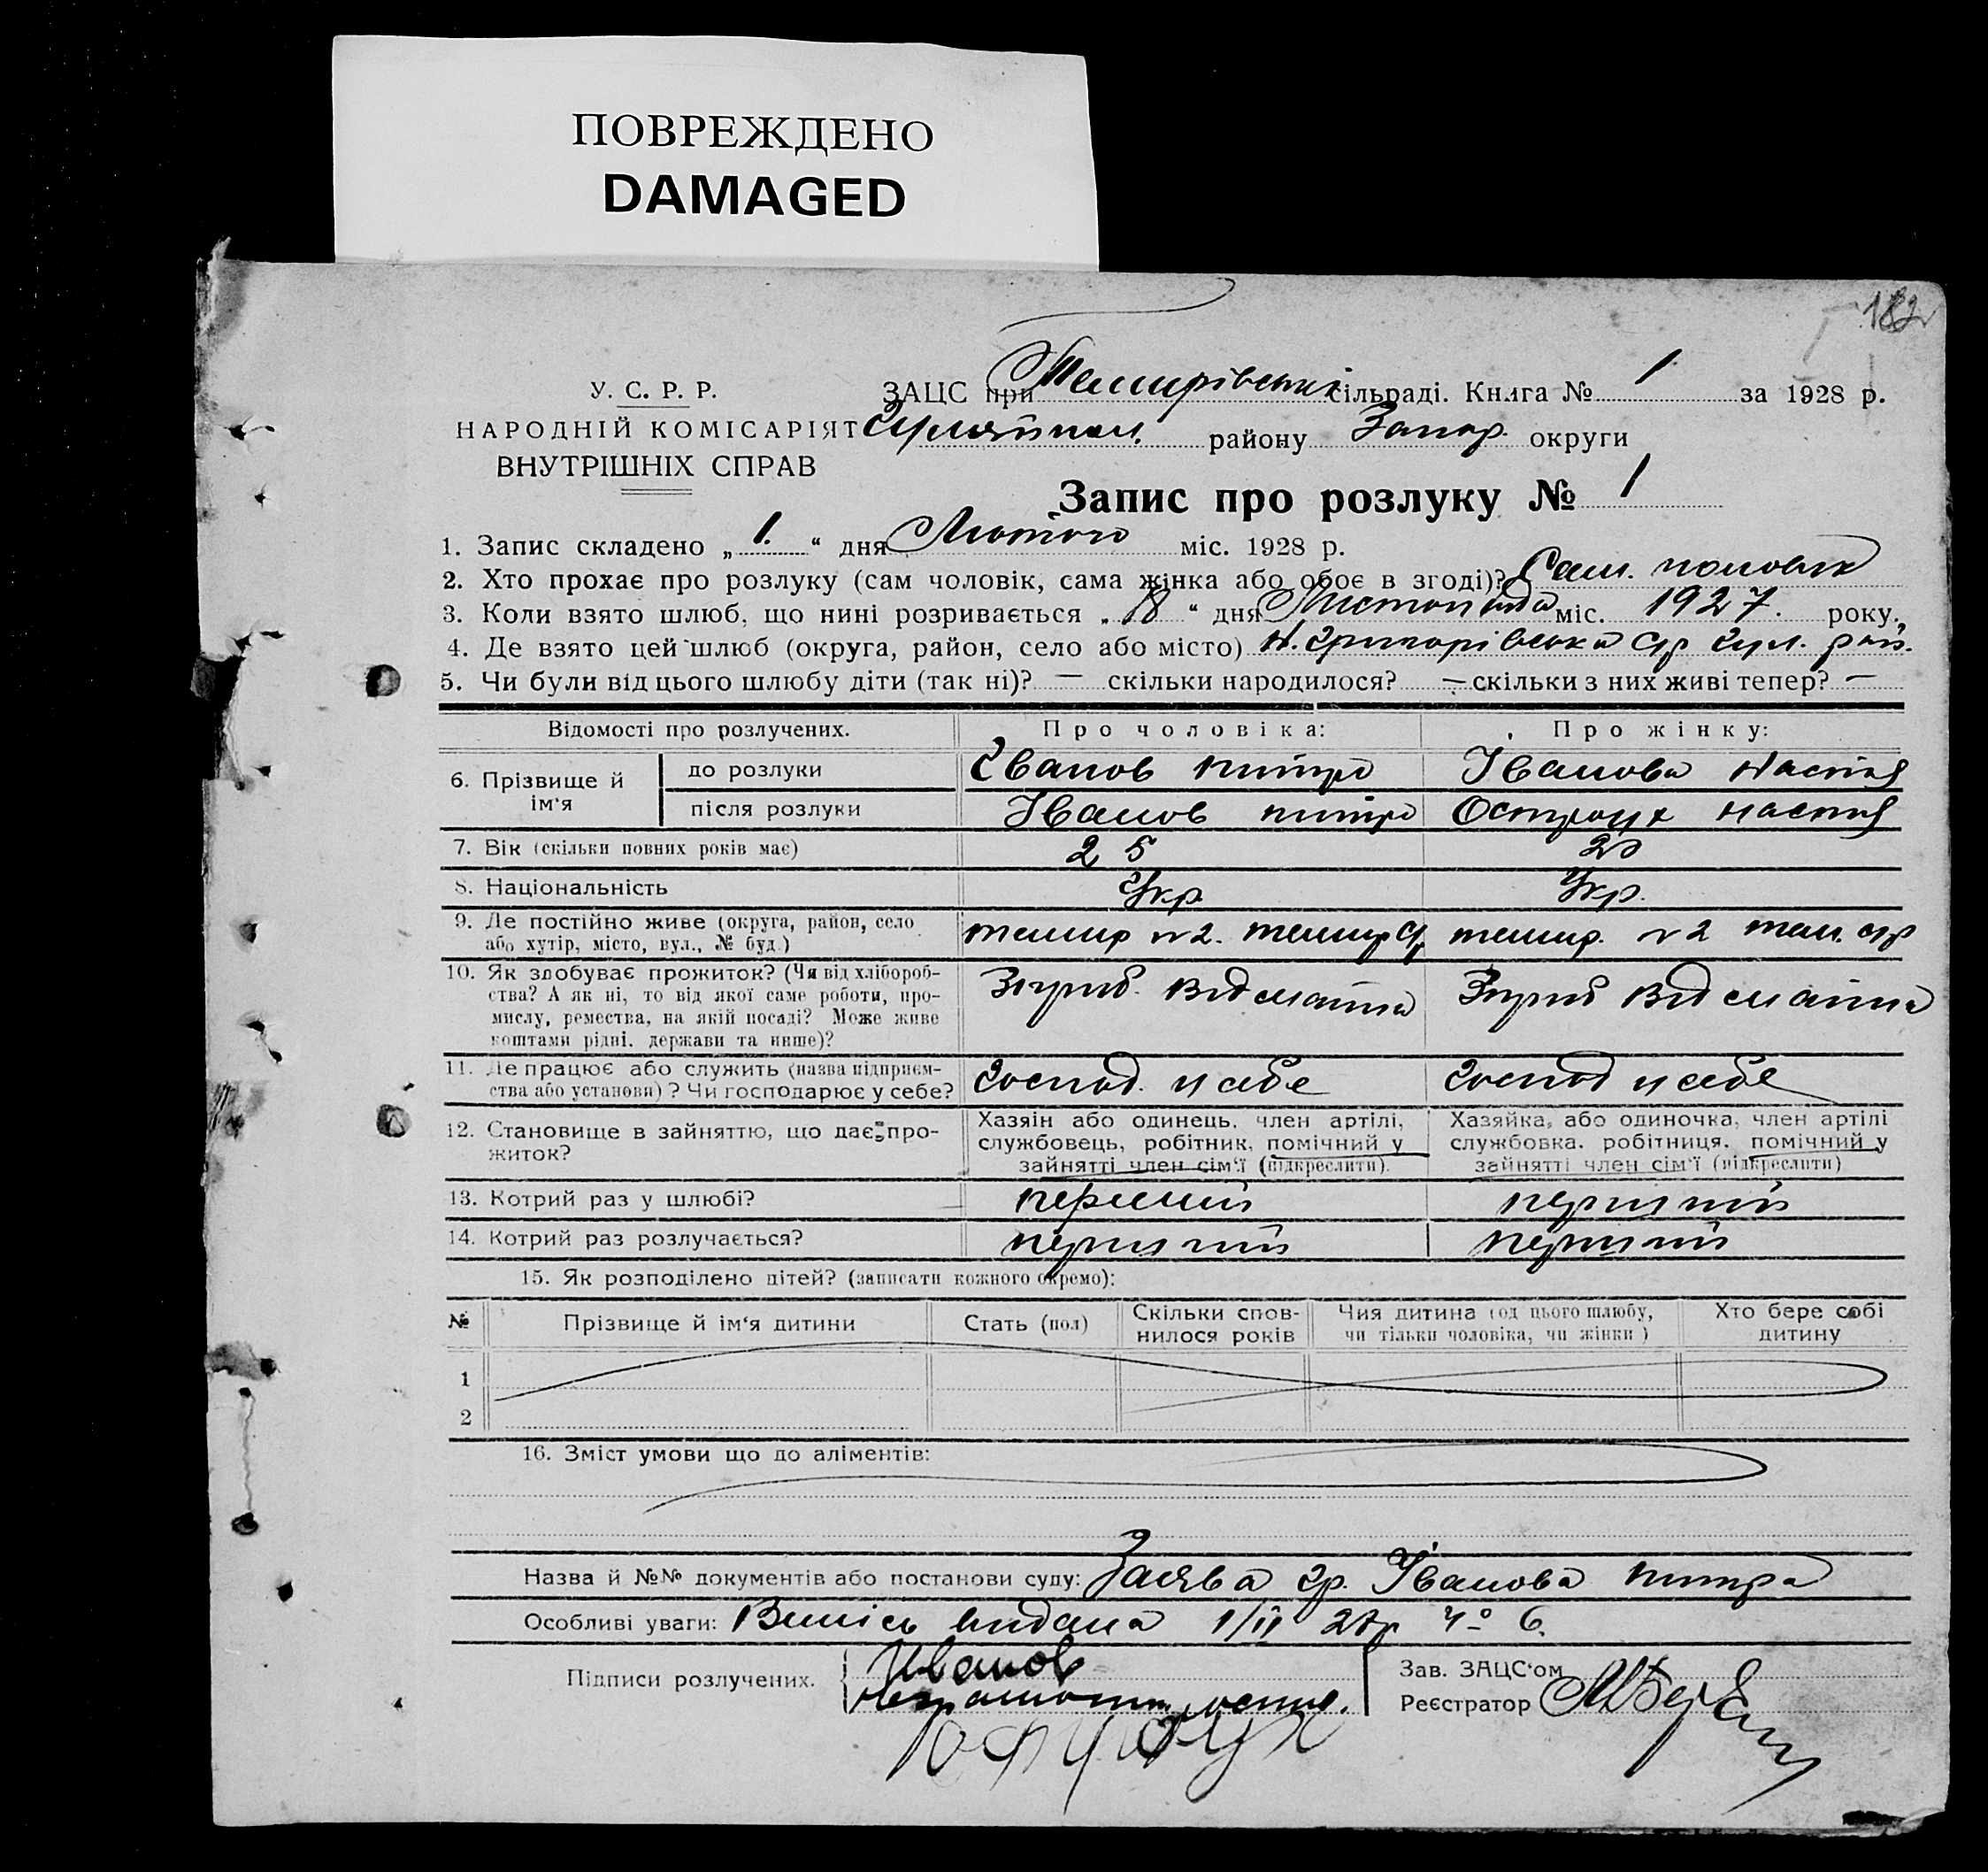 ПОВРЕЖДЕНО
DAMAGED
182
У. С. Р. Р.
НАРОДНІЙ КОМІСАРІЯТ
ВНУТРІШНІХ СПРАВ
ЗАЦС при Темирівській сільраді. Книга № 1 за 1928 р.
Гуляйпол. району Запор. округи
Запис про розлуку № 1
1. Запис складено „ 1. “ дня Лютого міс. 1928 р.
2. Хто прохає про розлуку (сам чоловік, сама жінка або обоє в згоді)? Сам. чоловік
3. Коли взято шлюб, що нині розривається „ 18 “ дня Листопада міс. 1927. року.
4. Де взято цей шлюб (округа, район, село або місто) Н. Григорівська ср гул. рай.
5. Чи були від цього шлюбу діти (так ні)? — скільки народилося? — скільки з них живі тепер? —
Відомості про розлучених. Про чоловіка: Про жінку:
6. Прізвище й ім‘я до розлуки Іванов Митро Іванова Настя
після розлуки Іванов Митро Остроух Настя
7. Вік (скільки повних років має) 25 20
8. Національність Укр Укр.
9. Де постійно живе (округа, район, село
або хутір, місто, вул., № буд.) темир №2. темир ср темир. №2 тем. ср
10. Як здобуває прожиток? (Чи від хлібороб-
ства? А як ні, то від якої саме роботи, про-
мислу, ремества, на якій посаді? Може живе
коштами рідні, держави та инше)?
11. Де працює або служить (назва підприєм-
ства або установи)? Чи господарює у себе? Господ. у себе Господ у себе
12. Становище в зайняттю, що дає про-
житок?
Хазяін або одинець, член артілі,
службовець, робітник, помічний у
зайнятті член сім‘ї (підкреслити).
Хазяйка, або одиночка, член артілі
службовка, робітниця, помічний у
зайнятті член сім‘ї (підкреслити)
13. Котрий раз у шлюбі? перший перший
14. Котрий раз розлучається? перший перший
15. Як розподілено дітей? (записати кожного окремо):
№ Прізвище й ім‘я дитини Стать (пол) Скільки спов-
нилося років Чия дитина (од цього шлюбу,
чи тільки чоловіка, чи жінки) Хто бере собі
дитину
1
2
16. Зміст умови що до аліментів:
Назва й №№ документів або постанови суду: Заява гр. Іванова Митра
Особливі уваги: Випісь видана 1/II 28р № 6.
Підписи розлучених. Иванов
Зав. ЗАЦС‘ом
Реєстратор